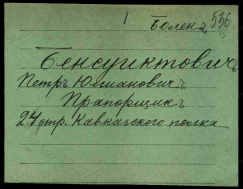 1 Болен 536
Бенсуиктовичъ
Петръ Юлiановичъ
Прапорщикъ
24 стр. Кавказскаго полка